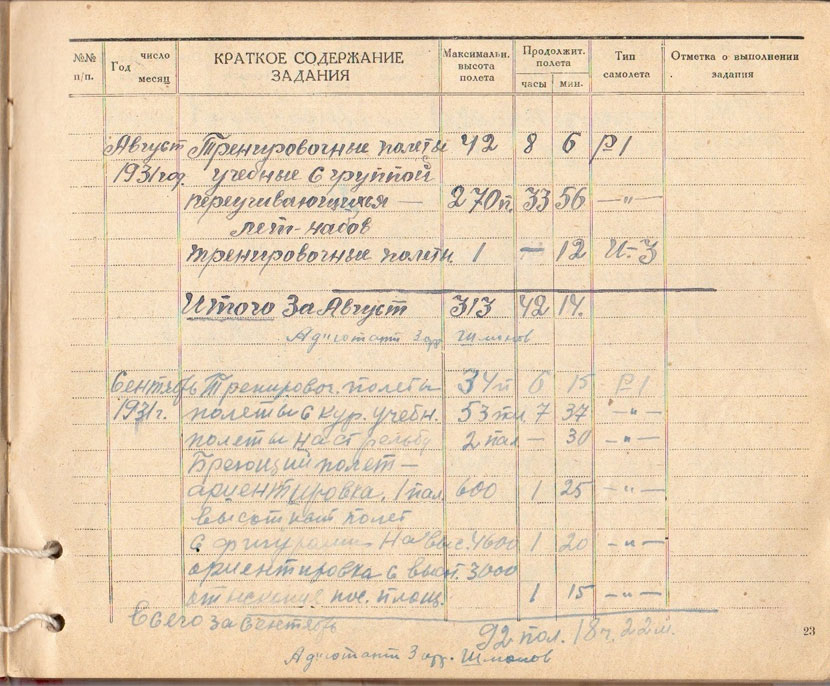 №№ п/п. Год число месяц КРАТКОЕ СОДЕРЖАНИЕ ЗАДАНИЯ Максимальн. высота полета Продолжит. полета часы мин. Тип самолета Отметка о выполнении задания
Август Тренировочные полеты 42 8 6 Р1
1931 год. учебные с группой
переучивающихся — 270 п. 33 56 —"—
лет-набов
тренировочные полеты 1 — 12 И-3
Итого за Август 313 42 14.
Адъютант 3
Сентябрь Трениров. полеты 34 п 6 15 Р1
1931 г. полеты с кур. учебн. 53 7 37 —"—
полеты на стрельбу 2 пол — 30 —"—
Бреющий полет —
ориентировка. 1 пол. 600 1 25 —"—
высотный полет
с фигурами на выс. 4600 1 20 —"—
ориентировка с выст. 3000
пос. площ. 1 15 —"—
Всего за сентябрь 92 пол. 18 ч. 22 м.
Адъютант 3
23